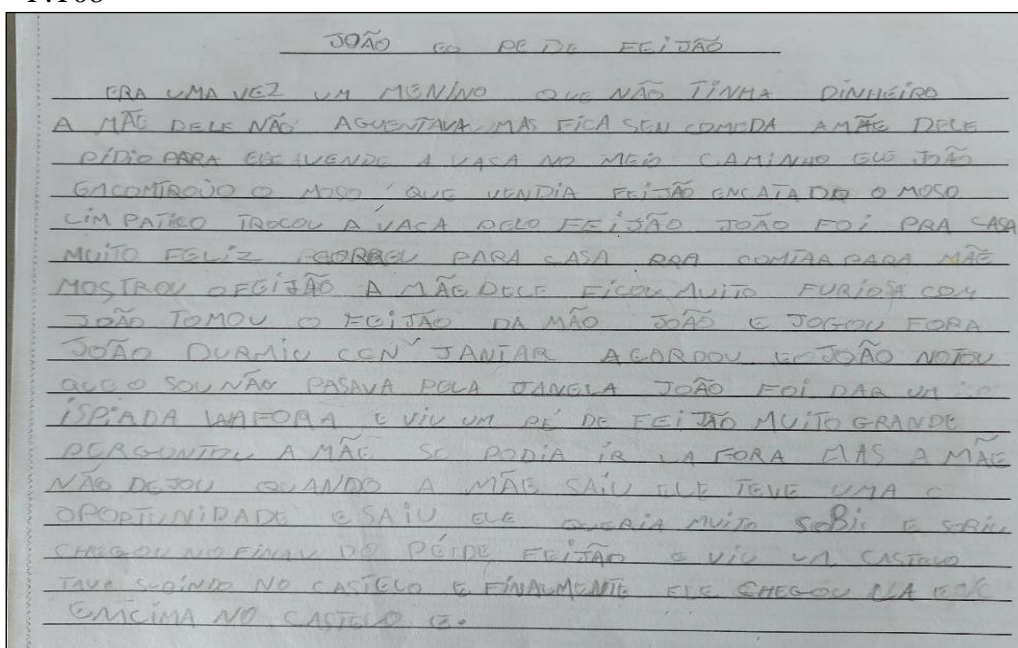 JOÃO EO PE DE FEIJÃO
ERA UMA VEZ UM MENINO QUE NÃO TINHA DINHEIRO
A MÃE DELE NÃO AGUENTAVA MAS FICA SEN COMEDA A MÃE DELE
PIDIO PARA ELE VENDE A VACA NO MEIO CAMINHO ELE JOÃO
O MOSO QUE VENDIA FEIJÃO ENCATADO O MOSO
CIMPATICO TROCOU A VACA PELO FEIJÃO JOÃO FOI PRA CASA
MUITO FELIZ CORREU PARA CASA PRA COMTAR PARA MÃE
MOSTROU O FEIJÃO A MÃE DELE FICOU MUITO FURIOSA COM
JOÃO TOMOU O FEIJÃO DA MÃO JOÃO E JOGOU FORA
JOÃO DURMIU CEN JANTAR ACORDOU JOÃO NOTOU
QUE O SOU NÃO PASAVA PELA JANELA JOÃO FOI DAR UM
ISPIADA LAFORA E VIU UM PÉ DE FEIJÃO MUITO GRANDE
PERGUNTOU A MÃE SE PODIA IR LA FORA MAS A MÃE
NÃO DEJOU QUANDO A MÃE SAIU ELE TEVE UMA
OPORTUNIDADE E SAIU ELE QUERIA MUITO SOBIR E SOBIU
CHEGOU NO FINAU DO PÉ DE FEIJÃO E VIU UM CASTELO
TAVA SUBINDO NO CASTELO E FINALMENTE ELE CHEGOU LA
EMCIMA NO CASTELO E.